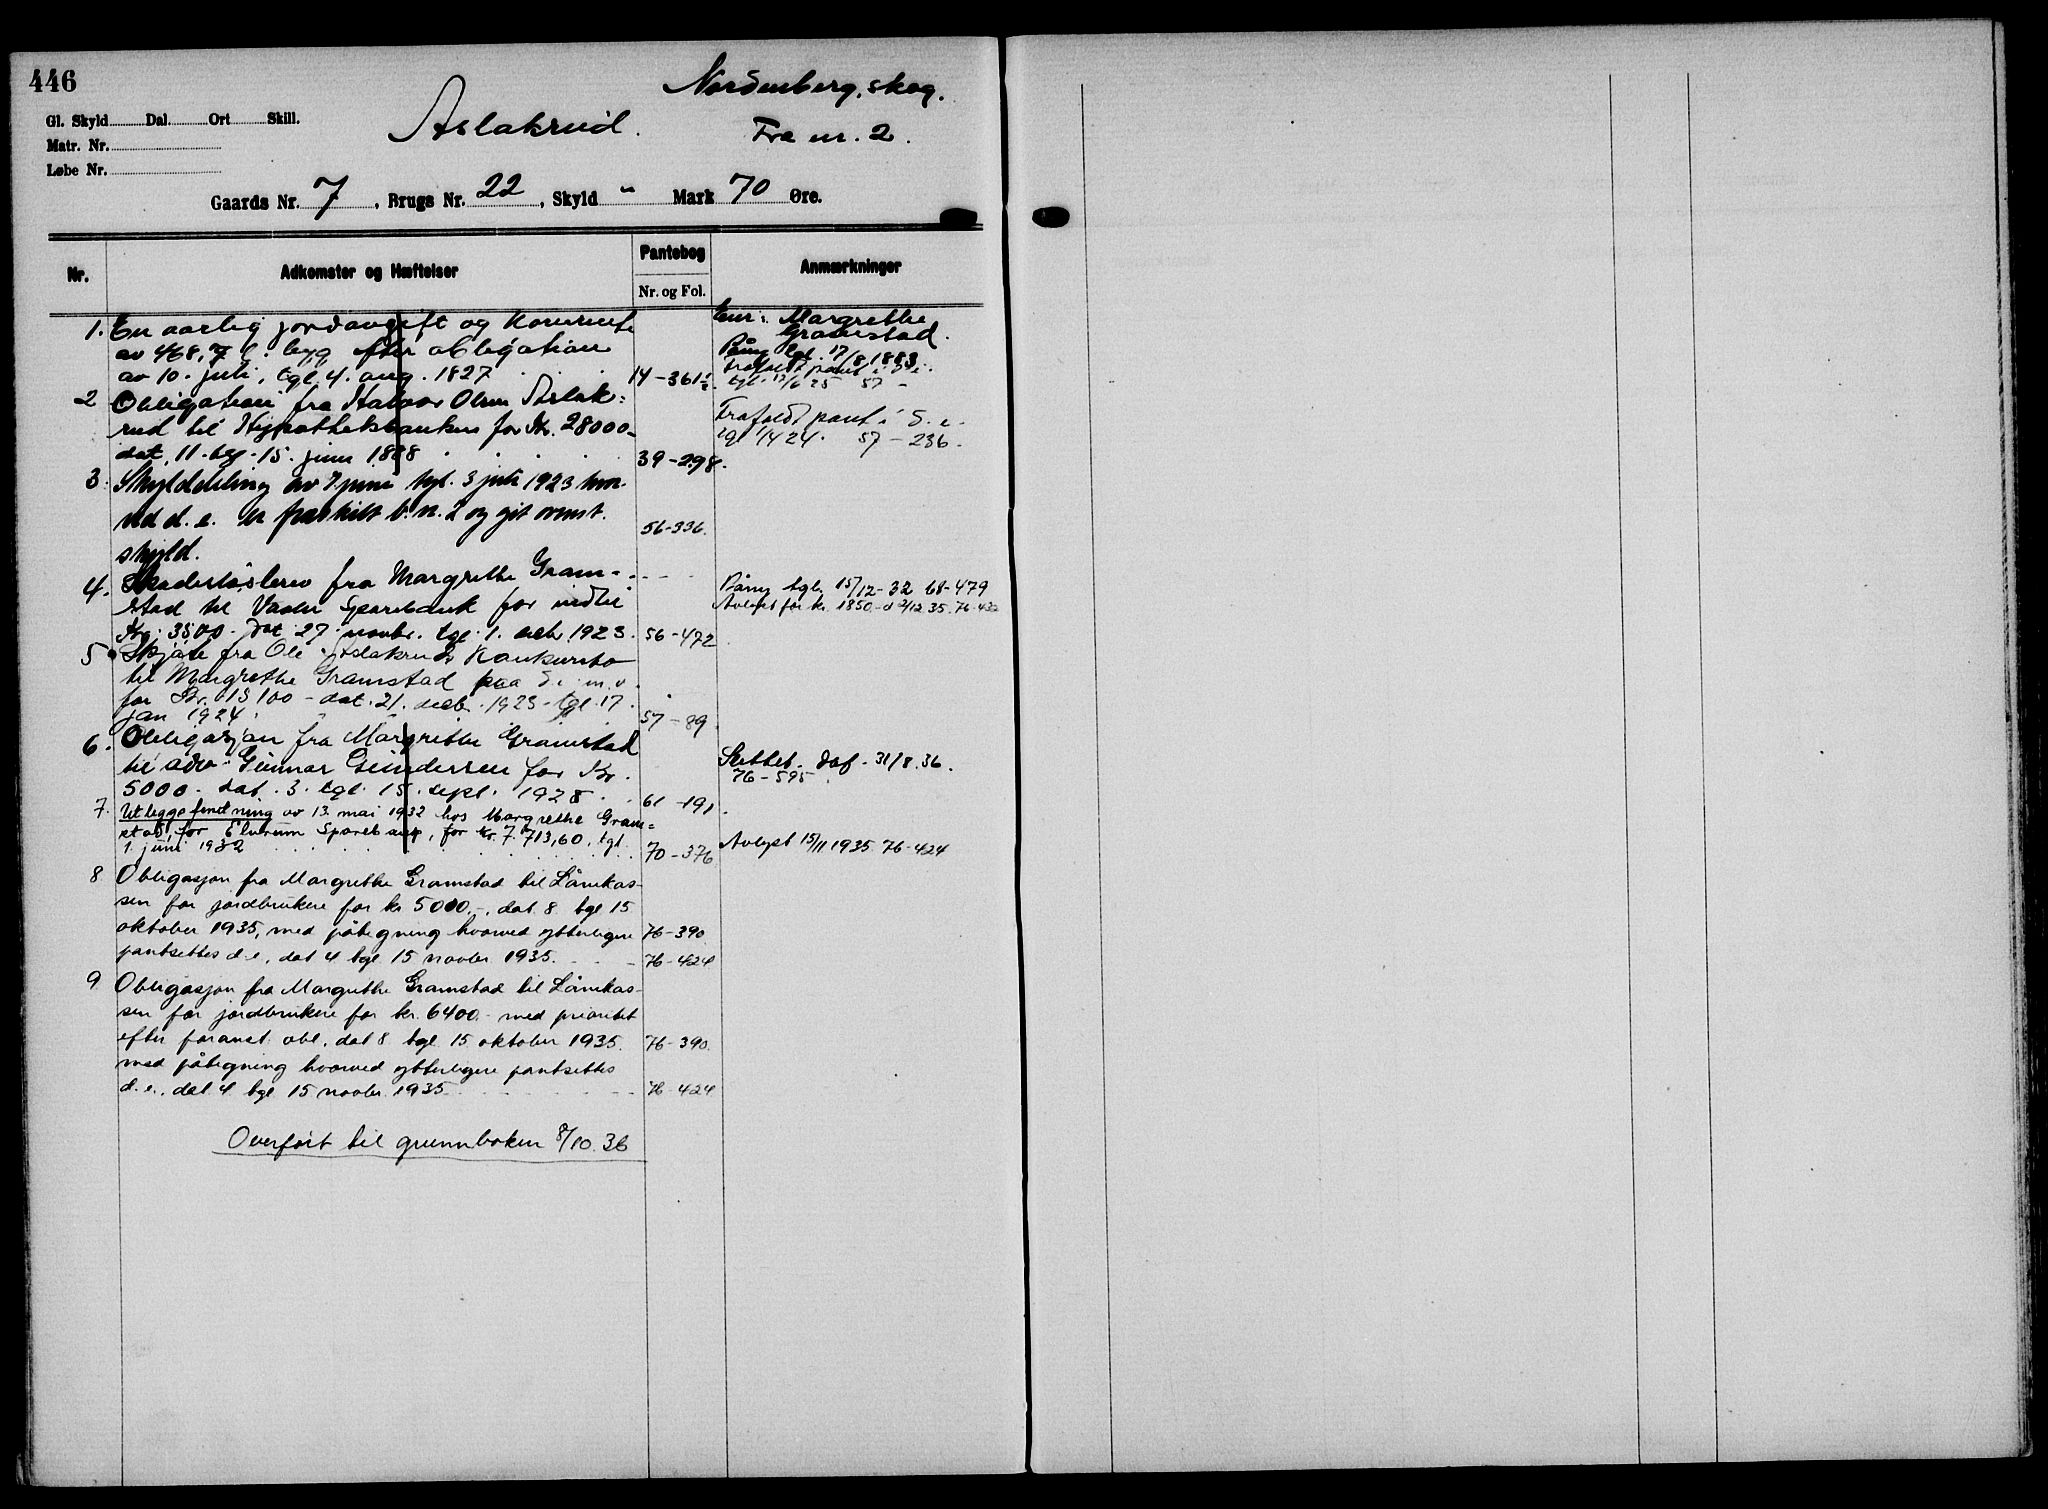 446
Nordenberg, skog.
Gl. Skyld Dal. Ort Skill.
Aslakrud.
Fra nr. 2.
Matr. Nr.
Løbe Nr.
Gaards Nr. 7, Brugs Nr. 22, Skyld " Mark 70 Øre.
Nr.
Adkomster og Hæftelser
Pantebog
Nr. og Fol.
Anmærkninger
Eier: Margrethe
Gramstad.
1. En aarlig jordavgift og Kornrente
av 468,7 l. byg efter obligation
av 10. juli, tgl. 4. aug. 1827 14-361
Påny tgl. 17/8 1883.
Frafaldt pant i d. e.
tgl. 57-
2 Obligation fra Halvor Olsen Aslak-
rud til Hypothekbanken for Kr. 28000-
dat. 11. tgl. 15. juni 1888 39-298.
Frafaldt pant i d. e.
tgl 57-236.
3. Skylddeling av 7 juni tgl. 3 juli 1923 hvor-
ved d. e. er fraskilt b. n. 2 og git ovenst.
skyld. 56-336.
4. Skadesløsbrev fra Margrethe Gram-
stad til Vaaler Sparebank for indtil
Kr. 3500. dat. 27. novbr. tgl. 1. decbr. 1923. 56-472
Påny tgl. 15/12-32 68-479
Avlyst for kr. 1850.- 2/12 35. 76-432
5 Skjøte fra Ole Aslakruds Konkursbo
til Margrethe Gramstad paa d. e. m. v.
for Kr. 15100- dat. 21. decbr. 1923- tgl. 17.
jan 1924. 57-89.
6. Obligasjon fra Margrethe Gramstad
til adv. Gunnar Gundersen for Kr.
5000- dat. 3. tgl. 15. sept. 1928 61-191.
Slettet. Daf. 31/8.36.
76-595
7. Utleggsforretning av 13. mai 1932 hos Margrethe Gram-
stad, for Elverum Sparebank, for kr. 7.713,60, tgl.
1. juni 1932 70-376
Avlyst 15/11 1935. 76-424
8 Obligasjon fra Margrethe Gramstad til Lånekas-
sen for jordbrukere for kr 5000.-, dat. 8. tgl 15
oktober 1935, med påtegning hvorved ytterligere 76-390
pantsettes d.e., dat 4 tgl 15 novbr. 1935. 76-424
9. Obligasjon fra Margrethe Gramstad til Lånekas-
sen for jordbrukere for kr. 6400.- med prioritet
efter foranst. obl., dat 8 tgl 15 oktober 1935. 76-390.
med påtegning hvorved ytterligere pantsettes
d. e., dat. 4 tgl 15 novbr. 1935 76-424
Overført til grunnboken 8/10.36